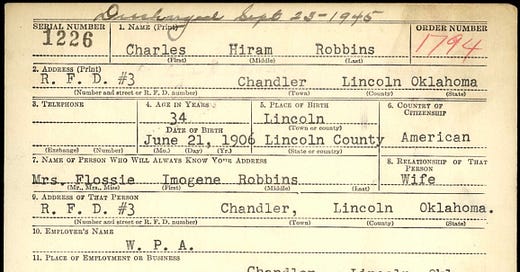 Discharged Sept 23-1945
SERIAL NUMBER 1. NAME (Print) ORDER NUMBER
1226 Charles Hiram Robbins 1794
(First) (Middle) (Last)
2. ADDRESS (Print)
R. F. D. #3 Chandler Lincoln Oklahoma
(Number and street or R. F. D. number) (Town) (County) (State)
3. TELEPHONE 4. AGE IN YEARS 5. PLACE OF BIRTH 6. COUNTRY OF CITIZENSHIP
34 Lincoln
DATE OF BIRTH (Town or county)
June 21, 1906 Lincoln County American
(Exchange) (Number) (Mo.) (Day) (Yr.) (State or country)
7. NAME OF PERSON WHO WILL ALWAYS KNOW YOUR ADDRESS 8. RELATIONSHIP OF THAT PERSON
Mrs. Flossie Imogene Robbins Wife
(Mr., Mrs., Miss) (First) (Middle) (Last)
9. ADDRESS OF THAT PERSON
R. F. D. #3 Chandler, Lincoln Oklahoma.
(Number and street or R. F. D. number) (Town) (County) (State)
10. EMPLOYER'S NAME
W. P. A.
11. PLACE OF EMPLOYMENT OR BUSINESS
Chandler Lincoln